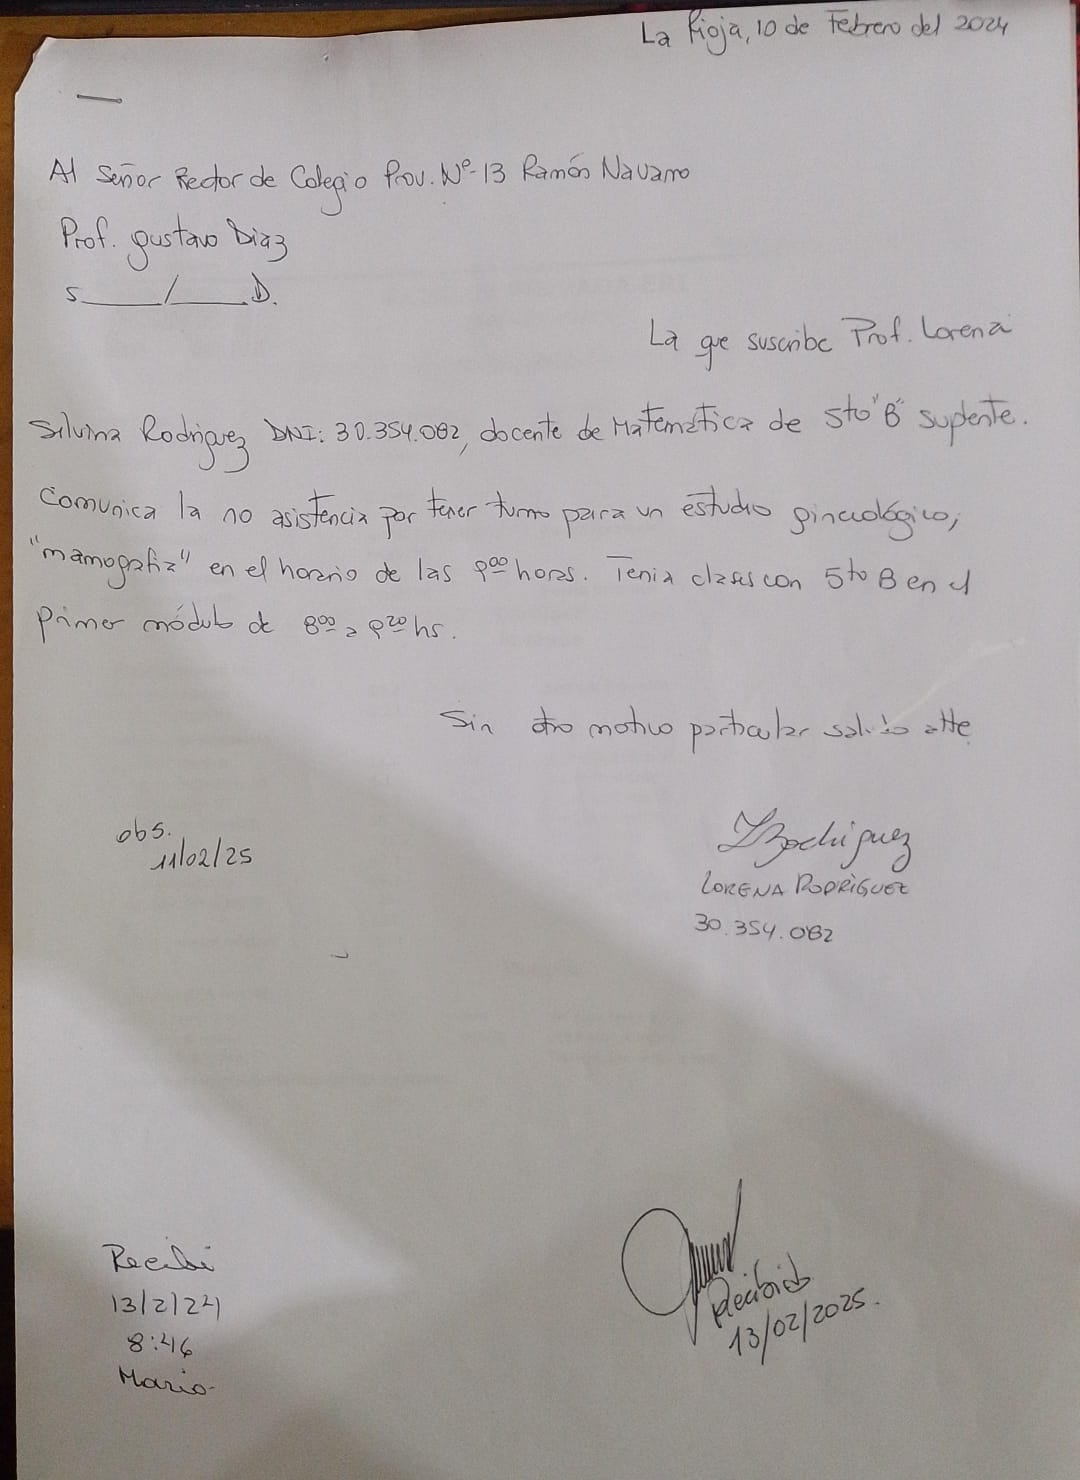 La Rioja, 10 de Febrero del 2024
Al Señor Rector de Colegio Prov. Nº 13 Ramón Navarro
Prof. gustavo Diaz
S____/____D.
La que suscribe Prof. Lorena
Silvina Rodriguez DNI: 30.354.082, docente de Matemática de 5to "B" suplente.
Comunica la no asistencia por tener turno para un estudio ginecológico,
"mamografia" en el horario de las 9⁰⁰ horas. Tenia clases con 5to B en el
primer módulo de 8⁰⁰ a 9²⁰ hs.
Sin otro motivo particular saludo atte
obs.
11/02/25
LRodriguez
LORENA RODRIGUEZ
30.354.082
Recibi
13/2/24
8:46
Mario
Recibido
13/02/2025.